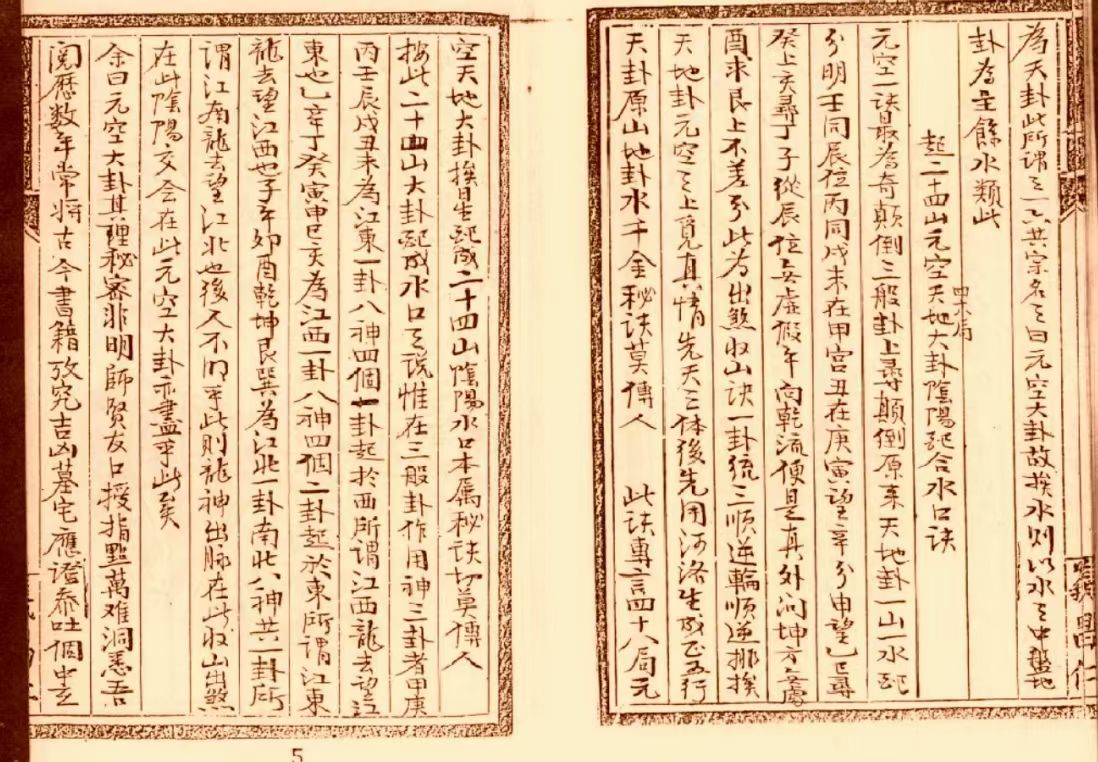 為天卦此所謂之一六共宗名之曰元空大卦故挨水則以水之中盤地
卦為主餘水類此
起二十四山元空天地大卦陰陽配合水口訣
四大局
元空一訣最為奇顛倒三般卦上尋顛倒原来天地卦一山一水配
分明壬同辰位丙同戌未在甲宮丑在庚寅望辛分申望乙巳尋
癸上亥尋丁子從辰位無虛假午向乾流便是真外向坤方
酉求艮上不差分此为出煞收山訣一卦統三順逆輪順逆挪挨
天地卦元空之上覓真情先天之体後先用河洛生成正五行
天卦原山地卦水千金秘訣莫傳人 此訣專言四十八局元
空天地大卦挨星配成二十四山陰陽水口本屬秘訣切莫傳人
按此二十四山大卦配成水口之說惟在三般卦作用神三卦者甲庚
丙壬辰戌丑未為江東一卦八神四個一卦起於西所謂江西龍去望江
東也乙辛丁癸寅申巳亥為江西一卦八神四個二卦起於東所謂江東
龍去望江西也子午卯酉乾坤艮巽為江北一卦南北八神共一卦所
謂江南龍去望江北也後人不明乎此則龍神出脉在此收山出煞
在此陰陽交会在此元空大卦亦盡乎此矣
余曰元空大卦其理秘密非明師賢友口授指點萬难洞悉吾
閱歷数年常将古今書籍攷究吉凶墓宅應證泰吐個中玄
5